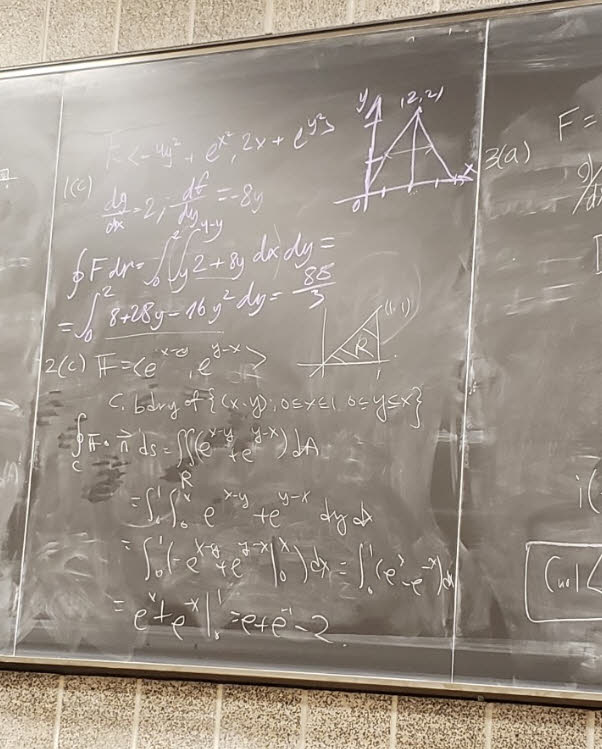 F<-4y², + e^x², 2x + e^y²>
1(c)
dg/dx = 2, df/dy = -8y
y (2,2)
0 x
∮ F dr = ∫₀² ∫_y^4-y 2 + 8y dx dy =
= ∫₀² 8+28y-16y² dy = 88/3
2(c) F = <e^x-y, e^y-x>
(1,1)
R
1
C: bdry of {(x,y): 0≤x≤1, 0≤y≤x}
∮_C F · n ds = ∬_R (e^x-y + e^y-x) dA
= ∫₀¹ ∫₀^x e^x-y + e^y-x dy dx
= ∫₀¹ (-e^x-y + e^y-x |₀^x) dx = ∫₀¹ (e^x - e^-x) dx
= e^x + e^-x |₀¹ = e + e^-1 - 2.
3(a) F =